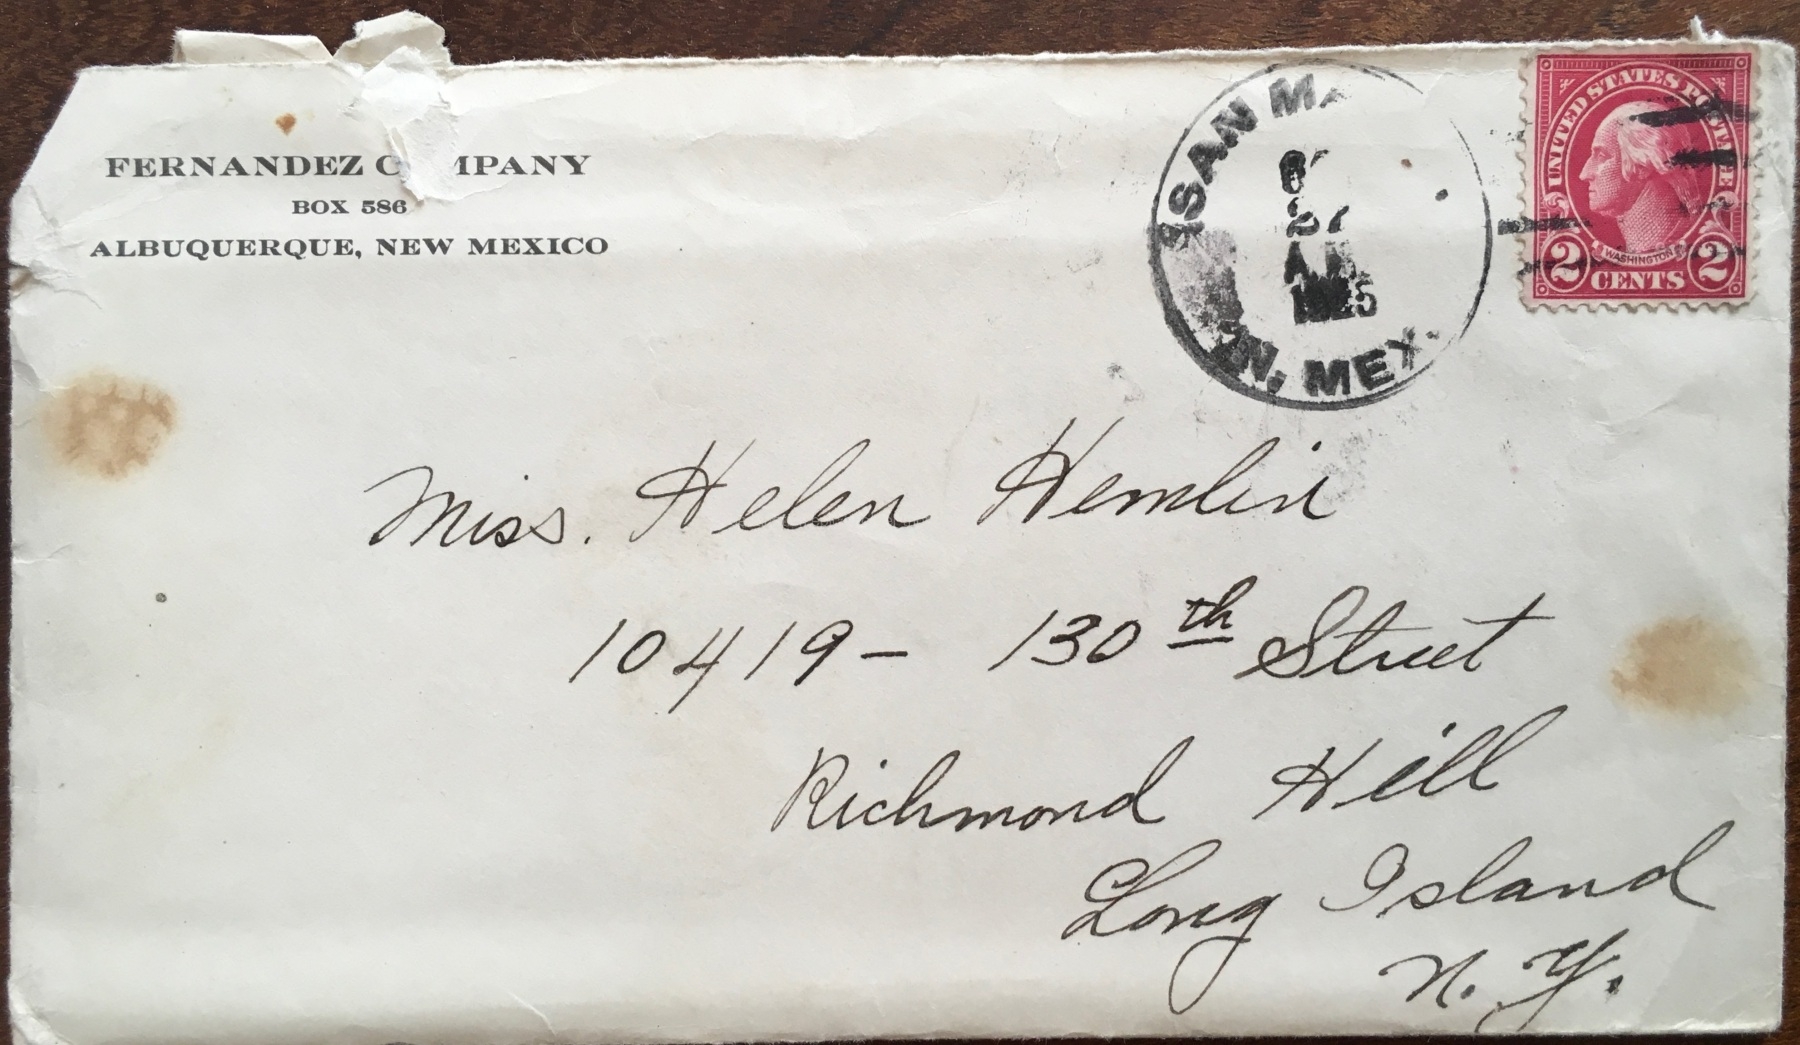 FERNANDEZ C MPANY
BOX 586
ALBUQUERQUE, NEW MEXICO
SAN
27
1925
N. MEX.
UNITED STATES POSTAGE
WASHINGTON
2 CENTS 2
Miss. Helen Hemlin
10419 - 130th Street
Richmond Hill
Long Island
N. Y.